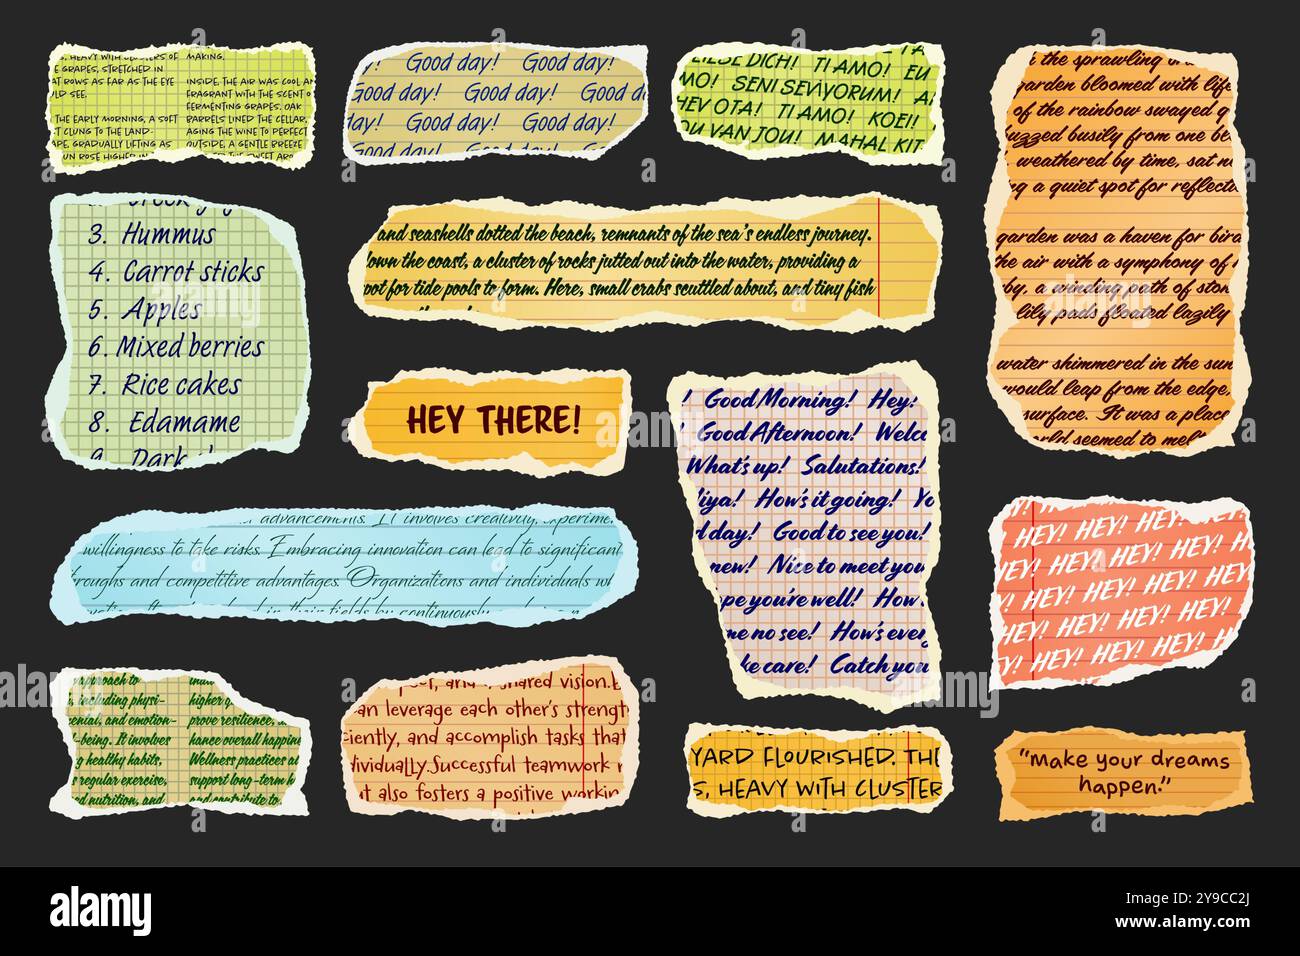 HEAVY WITH CLUSTERS OF
GRAPES, STRETCHED IN
ROWS AS FAR AS THE EYE
SEE.
THE EARLY MORNING, A SOFT
CLUNG TO THE LAND-
GRADUALLY LIFTING AS
ROSE HIGHER
MAKING.
INSIDE, THE AIR WAS COOL
FRAGRANT WITH THE SCENT
FERMENTING GRAPES. OAK
BARRELS LINED THE CELLAR,
AGING THE WINE TO PERFECT
OUTSIDE, A GENTLE BREEZE
SWEET
Good day! Good day!
Good day! Good day! Good d
day! Good day! Good day!
Good day! Good day!
DICH! TI AMO! EU
MO! SENI SEVIYORUM!
HEV OTA! TI AMO! KOEI!
OU VAN JOU! MAHAL KIT
the sprawling
garden bloomed with life
of the rainbow swayed
buzzed busily from one
weathered by time, sat
a quiet spot for reflect
garden was a haven for bird
the air with a symphony of
by, a winding path of ston
lily pads floated lazily
water shimmered in the sun
would leap from the edge,
surface. It was a place
seemed to melt
3. Hummus
4. Carrot sticks
5. Apples
6. Mixed berries
7. Rice cakes
8. Edamame
9. Dark
and seashells dotted the beach, remnants of the sea's endless journey.
down the coast, a cluster of rocks jutted out into the water, providing a
for tide pools to form. Here, small crabs scuttled about, and tiny fish
HEY THERE!
! Good Morning! Hey!
! Good Afternoon! Welc
What's up! Salutations!
iya! How's it going! Yo
d day! Good to see you!
new! Nice to meet you
pe you're well! How
me no see! How's every
ke care! Catch you
HEY! HEY! HEY!
HEY! HEY! HEY! HEY!
HEY! HEY! HEY! HEY!
HEY! HEY! HEY! HEY!
HEY! HEY! HEY! HEY!
advancements. It involves creativity, experime
willingness to take risks. Embracing innovation can lead to significant
throughs and competitive advantages. Organizations and individuals wh
in their fields by continuously
approach to
including physi-
and emotion-
-being. It involves
healthy habits,
regular exercise,
nutrition, and
higher
prove resilience,
hance overall happine
Wellness practices
support long-term
and contribute to
and shared vision.
an leverage each other's strengt
ciently, and accomplish tasks that
dividually. Successful teamwork
t also fosters a positive workin
YARD FLOURISHED. THE
S, HEAVY WITH CLUSTER
"Make your dreams
happen."
alamy
Image ID: 2Y9CC2J
www.alamy.com